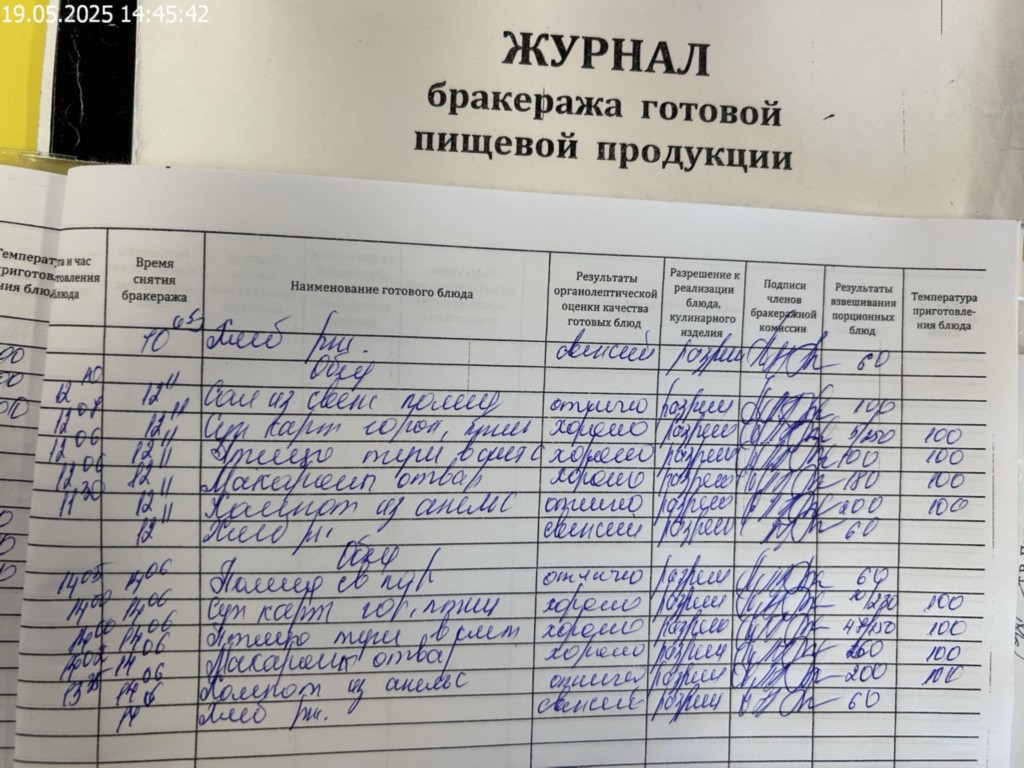 19.05.2025 14:45:42
ЖУРНАЛ
бракеража готовой
пищевой продукции
Температ
приготов
ния блю
та и час
товления
блюда
Время
снятия
бракеража
Наименование готового блюда
Результаты
органолептической
оценки качества
готовых блюд
Разрешение к
реализации
блюда,
кулинарного
изделия
Подписи
членов
бракеражной
комиссии
Результаты
взвешивания
порционных
блюд
Температура
приготовле-
ния блюда
10 05 Хлеб рж. свежий разреш 60
Обед
12 10 12 11 Сал из свеж помид отлично разреш 100
12 07 12 11 Суп карт горох, хорошо разреш 100
12 06 12 11 туш хорошо разреш 100 100
12 06 12 11 Макароны отвар хорошо разреш 180 100
11 30 12 11 Компот из апельс отлично разреш 200 100
12 Хлеб рж. свежий разреш 60
Обед
14 05 14 06 Помид св отлично разреш 60
14 00 14 06 Суп карт гор, хорошо разреш 100
14 00 14 06 туш хорошо разреш 100
14 06 Макароны отвар хорошо разреш 100
14 06 Компот из апельс отлично разреш 200 100
14 Хлеб рж. свежий разреш 60